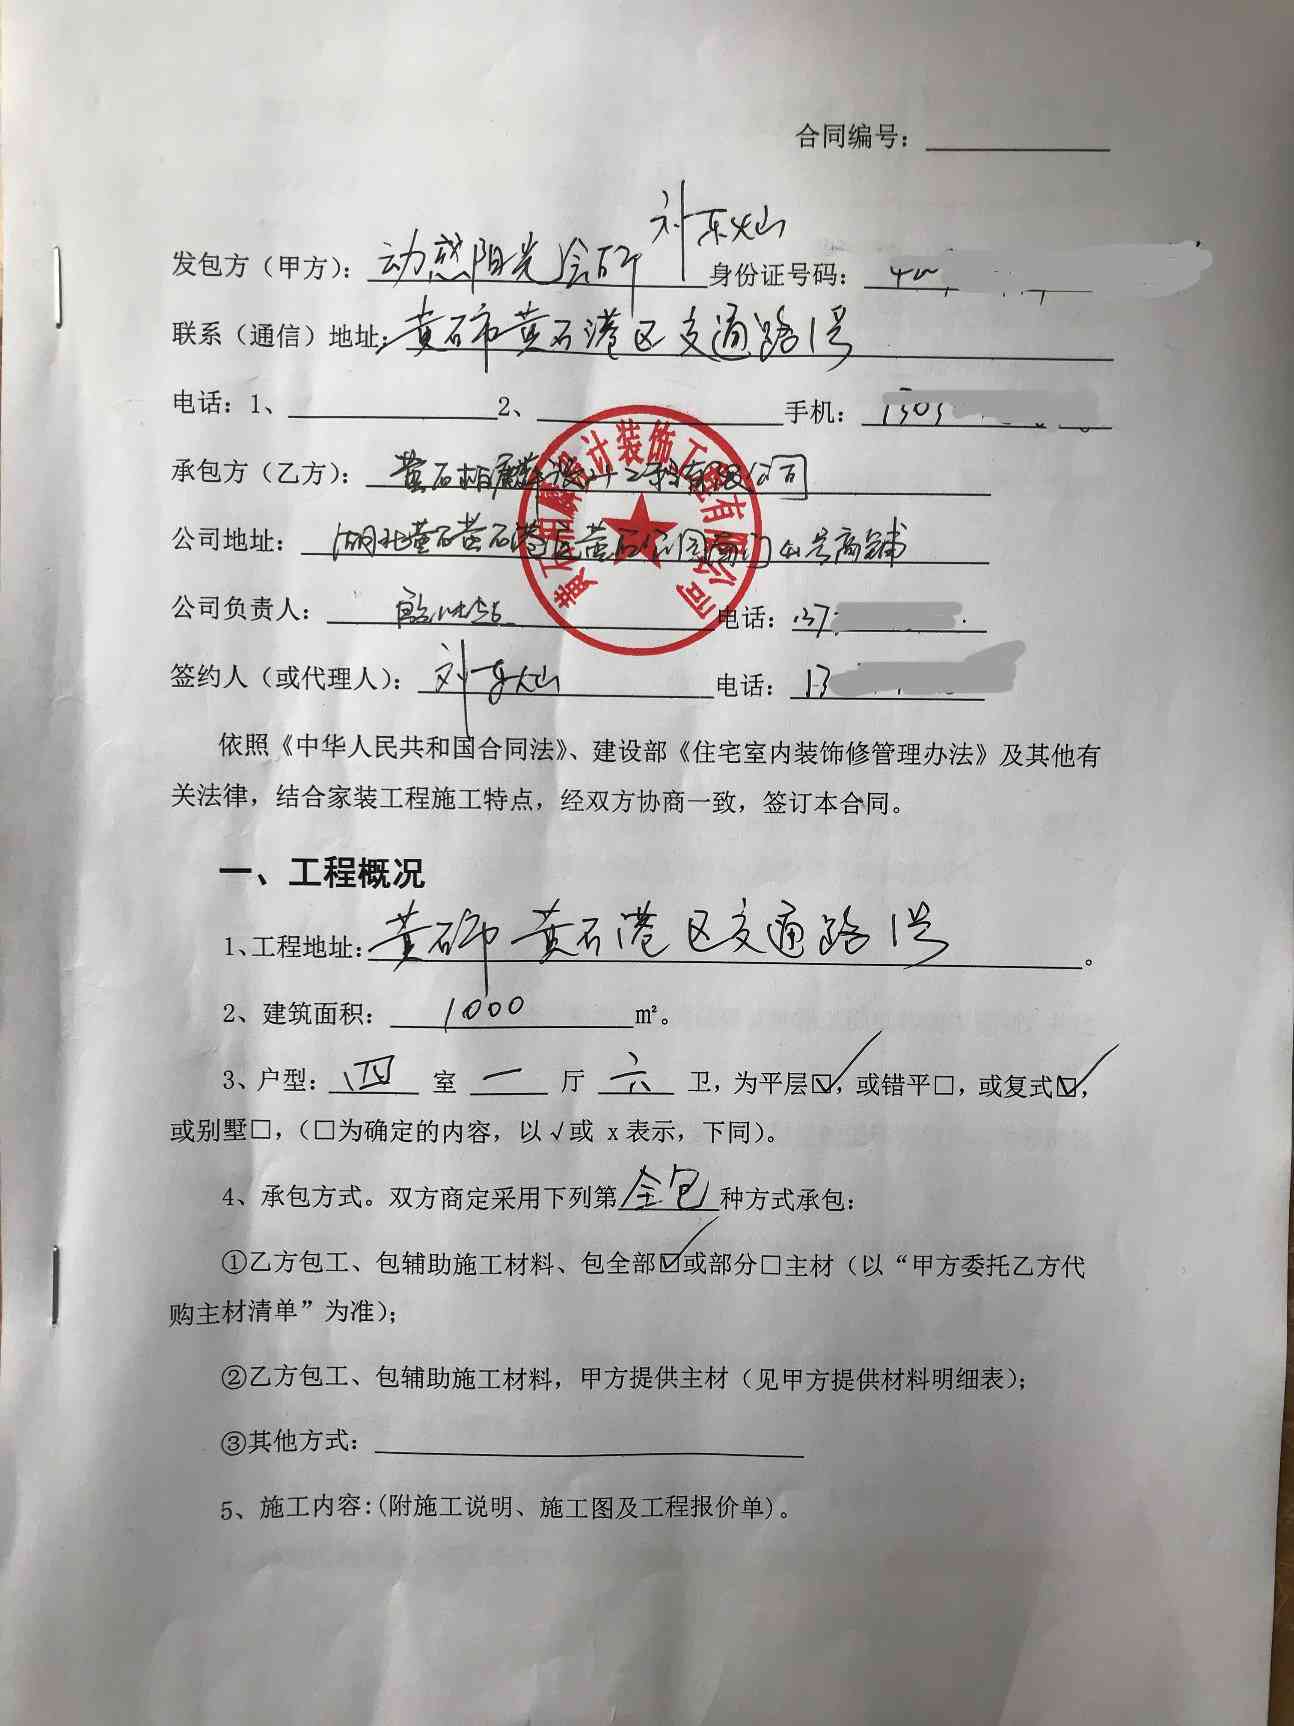 合同编号：
刘东灿
发包方（甲方）：动感阳光会所 身份证号码：
联系（通信）地址：黄石市黄石港区交通路1号
电话：1、 2、 手机：1303
承包方（乙方）：黄石柏麟设计工程有限公司
公司地址：湖北黄石黄石港区黄石公园南门 号商铺
公司负责人： 电话：137
签约人（或代理人）：刘东灿 电话：13
黄石柏麟设计装饰工程有限公司
依照《中华人民共和国合同法》、建设部《住宅室内装饰修管理办法》及其他有
关法律，结合家装工程施工特点，经双方协商一致，签订本合同。
一、工程概况
1、工程地址：黄石市黄石港区交通路1号。
2、建筑面积：1000 m²。
3、户型：四 室 一 厅 六 卫，为平层☑，或错平□，或复式☑，
或别墅□，（□为确定的内容，以√或 x表示，下同）。
4、承包方式。双方商定采用下列第全包种方式承包：
①乙方包工、包辅助施工材料、包全部☑或部分□主材（以“甲方委托乙方代
购主材清单”为准）；
②乙方包工、包辅助施工材料，甲方提供主材（见甲方提供材料明细表）；
③其他方式：
5、施工内容：(附施工说明、施工图及工程报价单)。